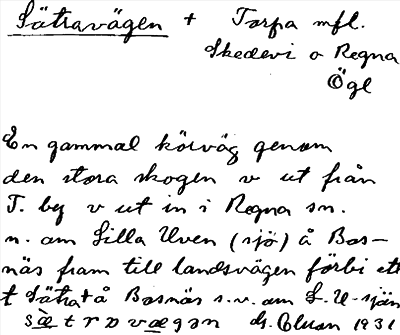 Sätravägen + Torpa mfl.
Skedevi o Regna
Ögl
En gammal körväg genom
den stora skogen v ut från
T. by v ut in i Regna sn.
n. om Lilla Uven (sjö) å Bos-
näs fram till landsvägen förbi ett
t Sätra + å Bosnäs s.v. om L. U-sjön
sætrɔvægən 1931